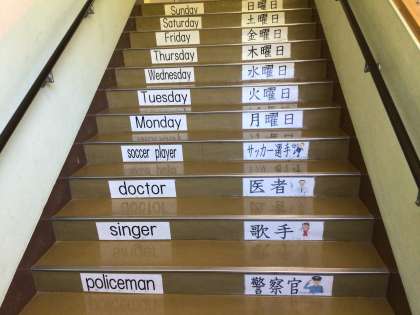 Sunday 日曜日
Saturday 土曜日
Friday 金曜日
Thursday 木曜日
Wednesday 水曜日
Tuesday 火曜日
Monday 月曜日
soccer player サッカー選手
doctor 医者
singer 歌手
policeman 警察官